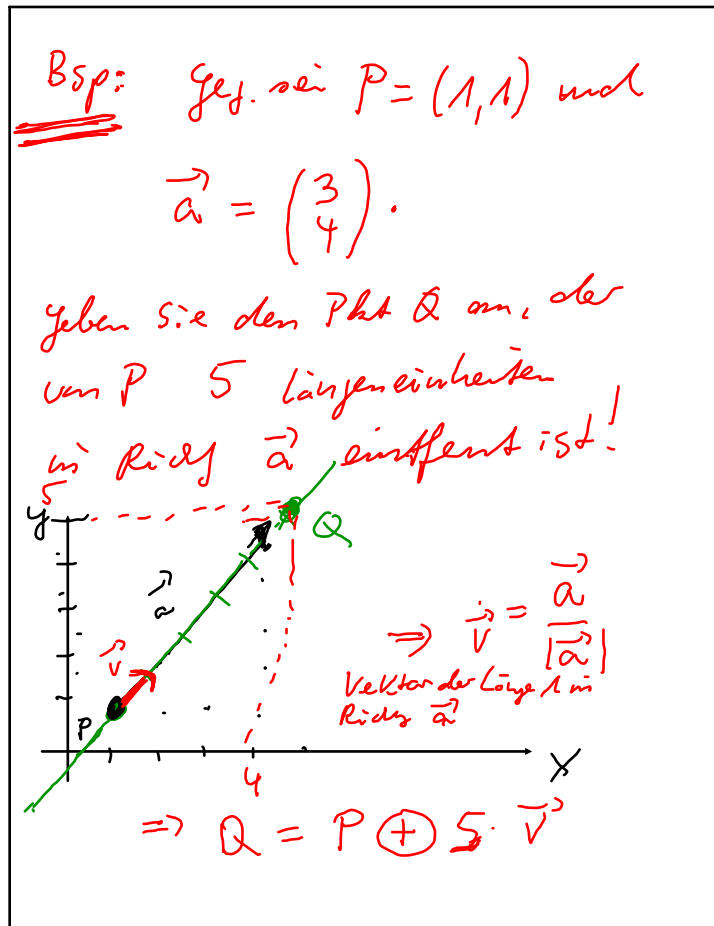 Bsp: Geg. sei P = (1,1) und
a⃗ = (3 4).
geben Sie den Pkt Q an, der
von P 5 Längeneinheiten
in Richg a⃗ entfernt ist!
5
y
Q
a⃗
v⃗
P
4
x
⇒ v⃗ = a⃗ / |a⃗|
Vektor der Länge 1 in
Richg a⃗
⇒ Q = P ⊕ 5 · v⃗